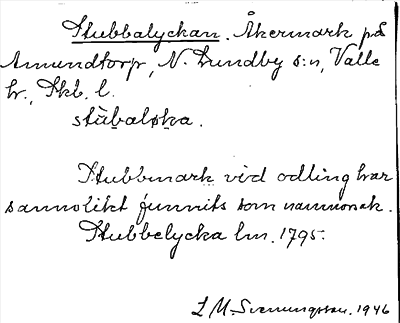 Stubbalyckan. Åkermark på
Amundtorp, N. Lundby s:n, Valle
hr., Skb. l.
stùbalyka.
Stubbmark vid odling har
sannolikt funnits som namnorsak.
Stubbelycka lm. 1795.
L M. Svenungsson. 1946